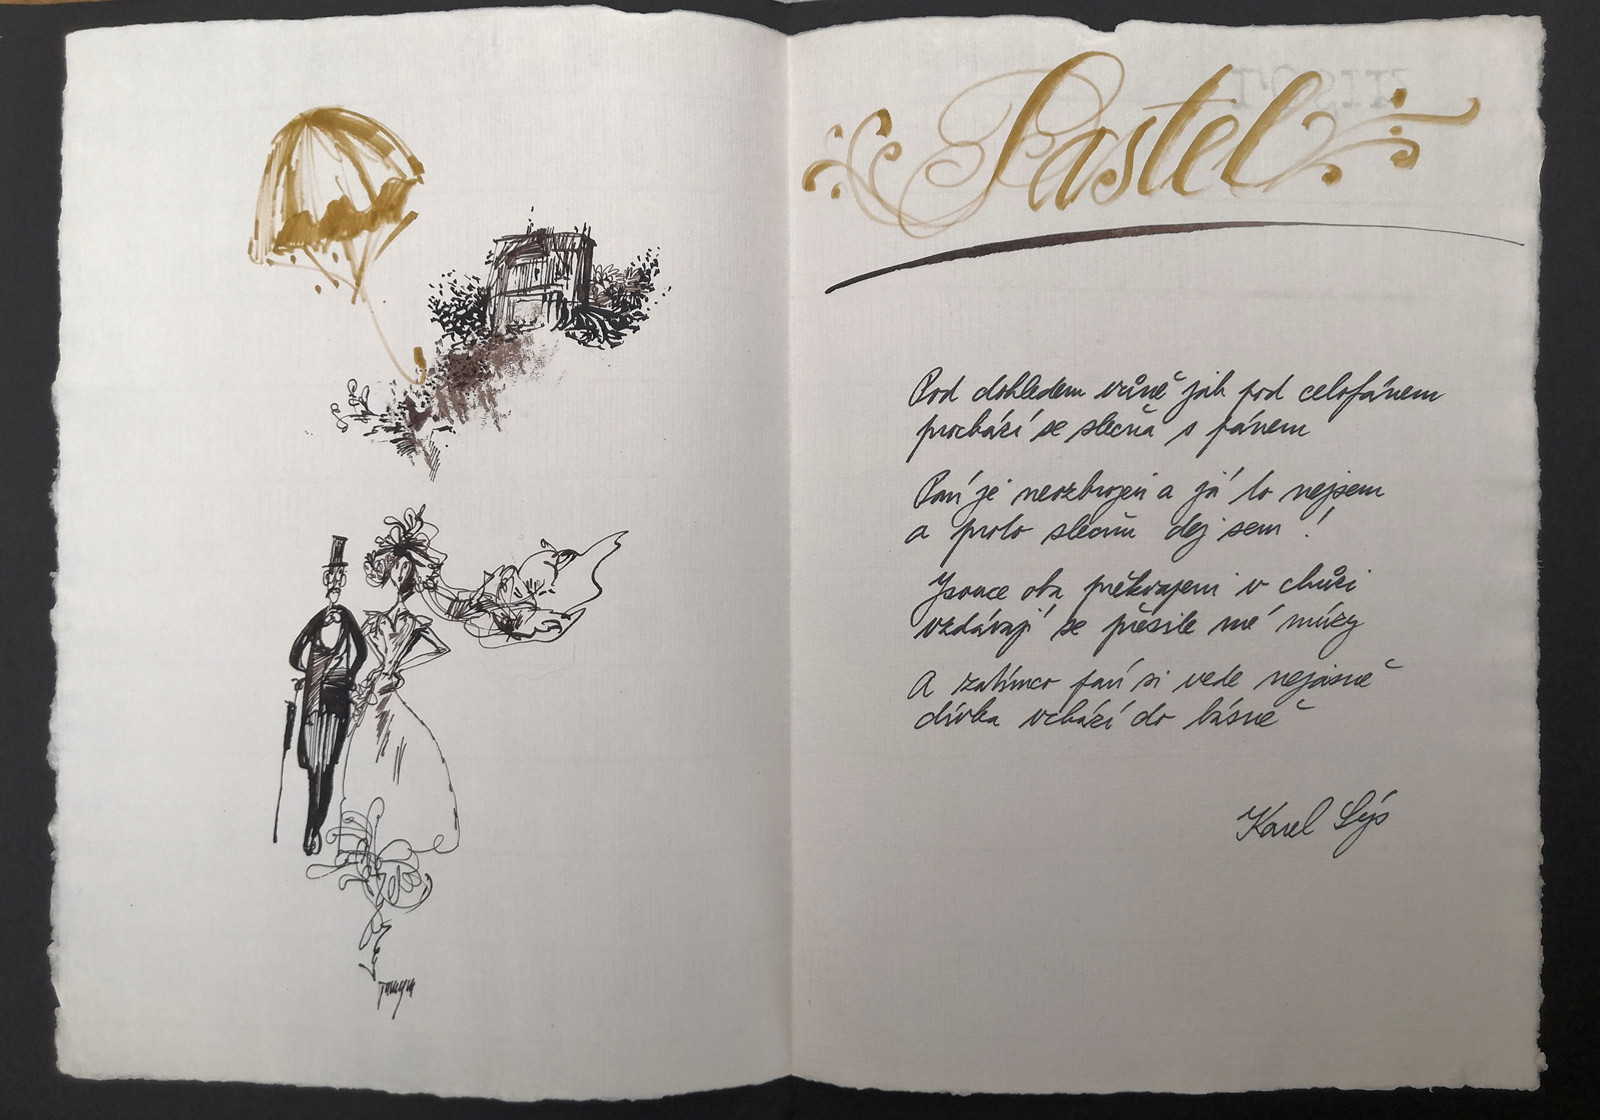 Pastel
Pod dohledem vůně jak pod celofánem
prochází se slečna s pánem
Pan je neozbrojen a já to nejsem
a proto slečnu dej sem!
Jsouce oba překvapeni v chůzi
vzdávají se přesile mé múzy
A zatímco pan si vede nejasně
dívka vchází do básně
Karel Sýs